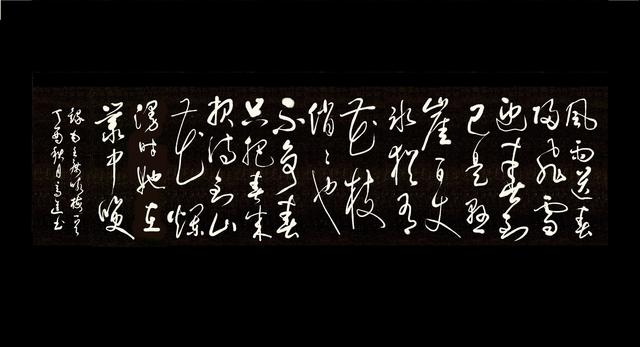 風雨送春
歸飛雪
迎春到
已是懸
崖百丈
冰猶有
花枝
俏々也
不争春
只把春来
报待到山
花爛
漫时她在
叢中笑
錄毛主席咏梅一首
丁酉秋月高书